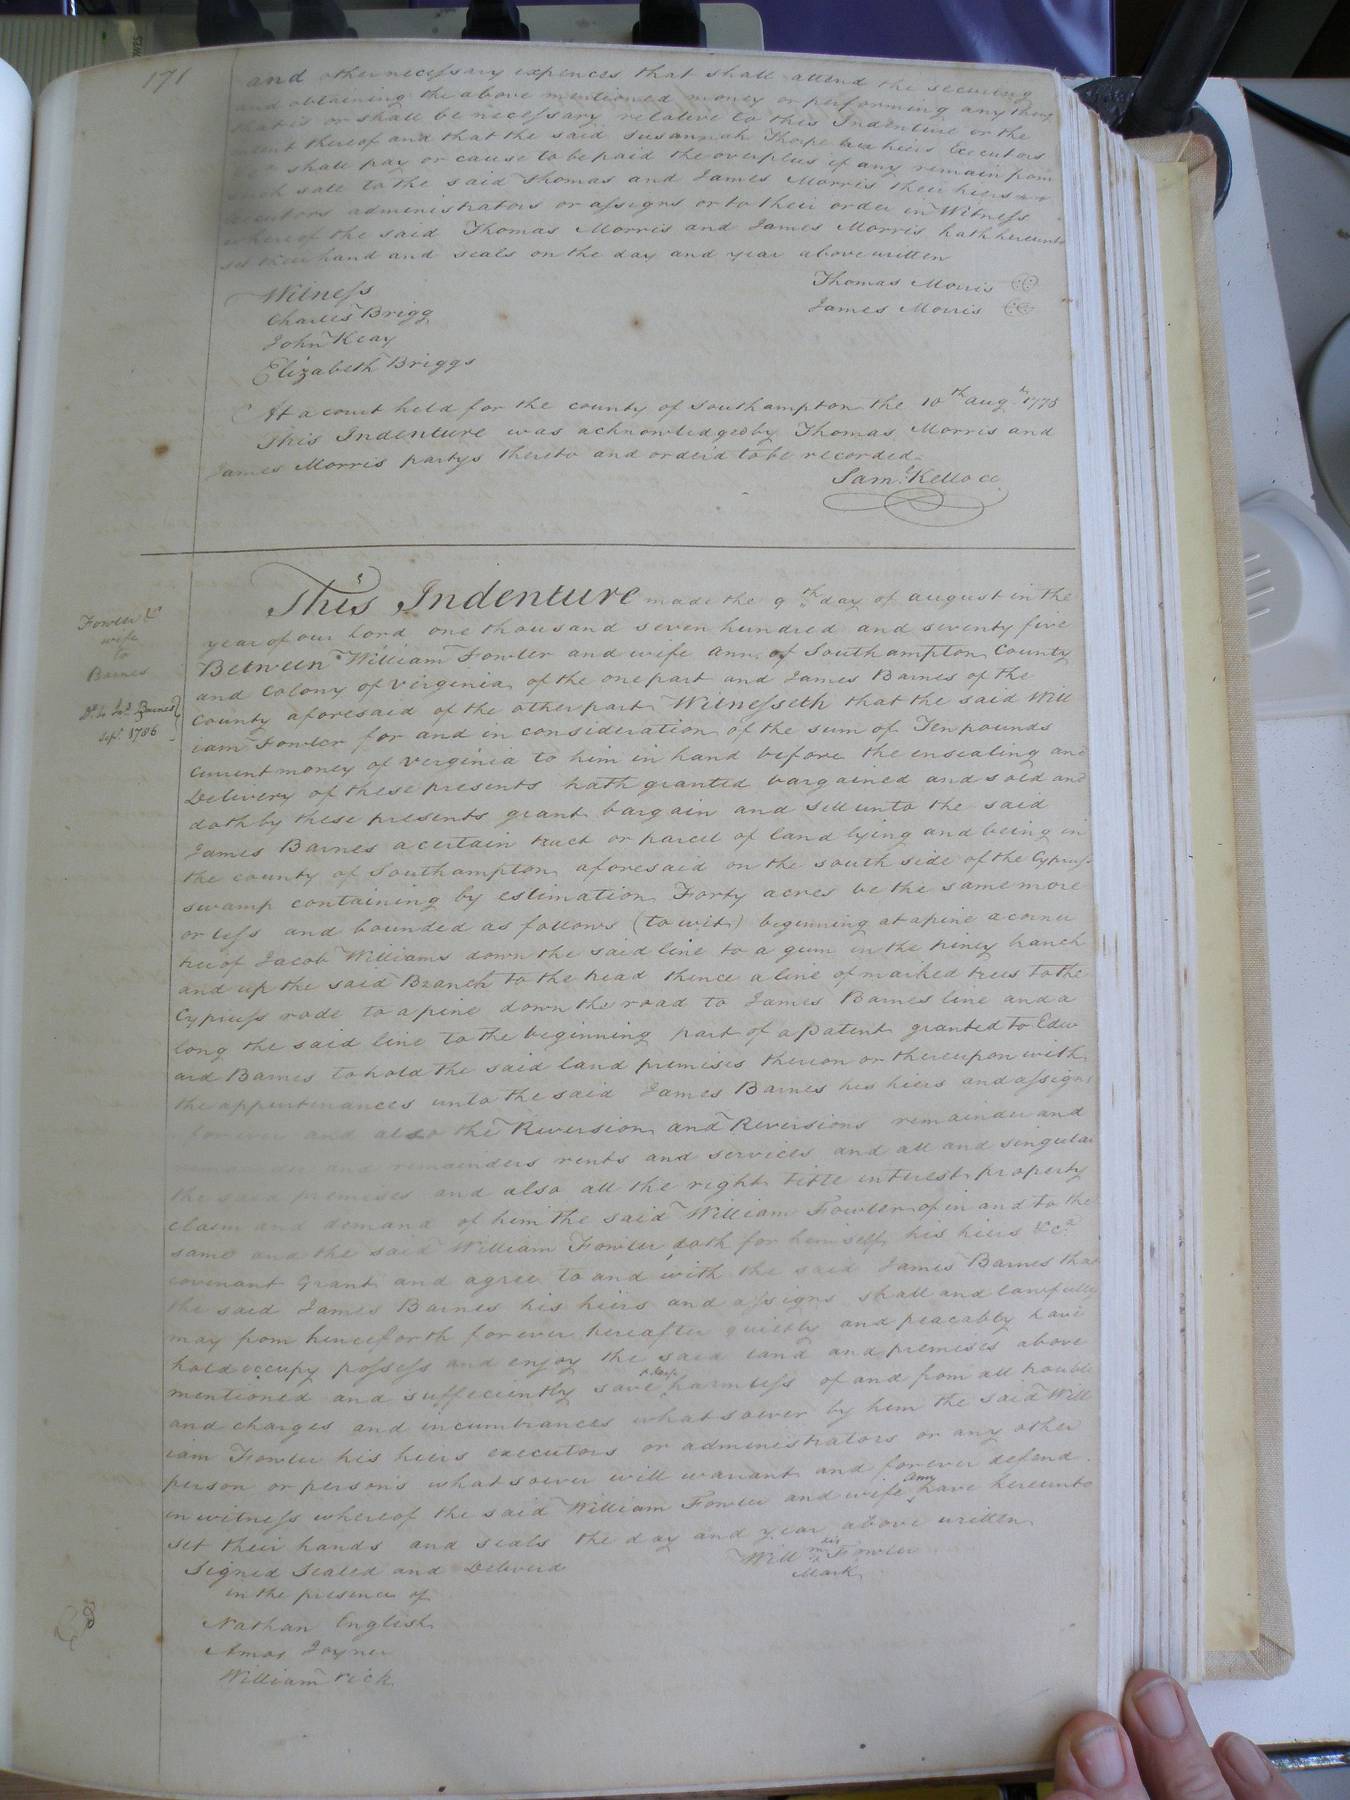 171
and other necessary expences that shall attend the secureing
and obtaining the above mentioned money or performing any thing
that is or shall be necessary relative to this Indenture or the
intent thereof and that the said Susannah Thorpe her heirs Executors
&c shall pay or cause to be paid the overplus if any remain from
such sale to the said Thomas and James Morris their hiers
executors administrators or assigns or to their order in Witness
whereof the said Thomas Morris and James Morris hath hereunto
set their hand and seals on the day and year above written
Witness
Thomas Morris
Charles Brigg
James Morris
John Keay
Elizabeth Briggs
At a court held for the county of Southampton the 10th augt 1775
This Indenture was acknowledged by Thomas Morris and
James Morris partys thereto and orderd to be recorded
Saml Kello cc
This Indenture made the 9th day of august in the
year of our lord one thousand seven hundred and seventy five
Between William Fowler and wife Ann of Southampton County
and Colony of virginia of the one part and James Barnes of the
County aforesaid of the other part Witnesseth that the said Will
iam Fowler for and in consideration of the sum of Ten pounds
Current money of virginia to him in hand before the ensealing and
Delivery of these presents hath granted bargained and sold and
doth by these presents grant bargain and sell unto the said
James Barnes a certain tract or parcel of land lying and being in
the county of Southampton aforesaid on the south side of the Cypress
swamp containing by estimation Forty acres be the same more
or less and bounded as follows (to wit) beginning at a pine a corner
tree of Jacob Williams down the said line to a gum in the piney branch
and up the said Branch to the head thence a line of marked trees to the
Cypruss rode to a pine down the road to James Barnes line and a
long the said line to the beginning part of a patent granted to Edw
ard Barnes to hold the said land premises thereon or thereupon with
the appurtinances unto the said James Barnes his hiers and assigns
forever and also the Reversion and Reversions remainder and
and remainders rents and services and all and singular
the said premises and also all the right title interest property
claim and demand of him the said William Fowler of in and to the
same and the said William Fowler doth for himself his hiers &ca
covenant Grant and agree to and with the said James Barnes that
the said James Barnes his hiers and assigns shall and lawfully
may from henceforth forever hereafter quietly and peacably have
hold occupy possess and enjoy the said land and premises above
mentioned and suffeciently save & keep harmless of and from all trouble
and charges and incumbrances whatsoever by him the said Will
iam Fowler his hiers executors or administrators or any other
person or persons whatsoever will warrant and forever defend
in witness whereof the said William Fowler and wife Ann have hereunto
set their hands and seals the day and year above written
Signed Sealed and Deliverd
Will his Fowler
Mark
in the presence of
Nathan English
Amos Joyner
William rick
Fowler &c
wife
to
Barnes
Dd to Jas Barnes
Sept 1786